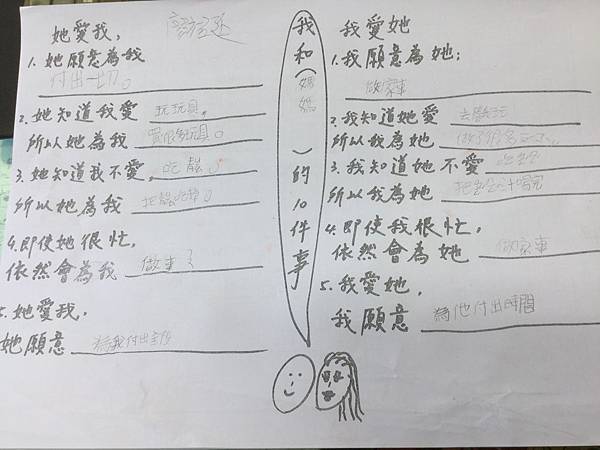 她愛我，
1. 她願意為我
付出一切。
2. 她知道我愛 玩玩具。
所以她為我 買很多玩具。
3. 她知道我不愛。吃
所以她為我
4. 即使她很忙，
依然會為我 做事
5. 她愛我，
她願意 為我付出
我和（媽媽）的10件事
我愛她
1. 我願意為她：
做家事
2. 我知道她愛 去
所以我為她 做了很多
3. 我知道她不愛
所以我為她 把
4. 即使我很忙，
依然會為她 做家事
5. 我愛她，
我願意 為他付出時間